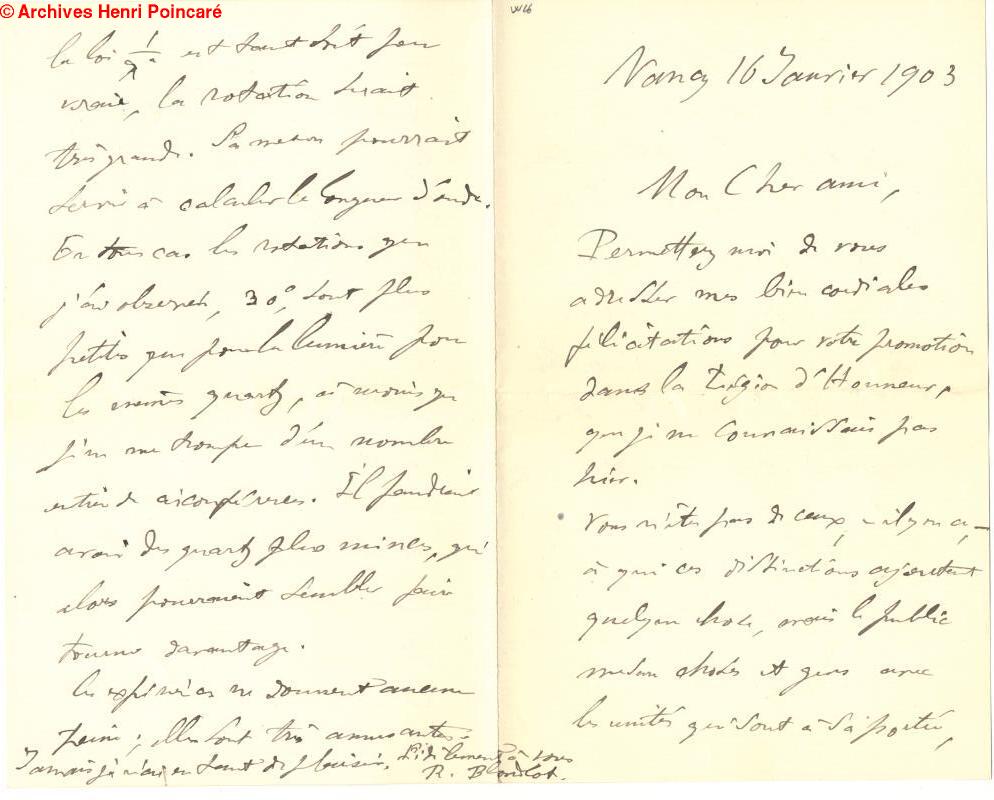 © Archives Henri Poincaré
Nancy 16 Janvier 1903
Mon Cher ami,
Permettez moi de vous
adresser mes bien cordiales
félicitations pour votre promotion
dans la Légion d'Honneur,
que je ne connaissais pas
hier.
Vous n'êtes pas de ceux, – il y en a, –
à qui ces distinctions ajoutent
quelque chose, mais le public
mesure choses et gens avec
les unités qui sont à sa portée,
la loi 1/λ² est tant soit peu
vraie, la rotation serait
très grande. Sa mesure pourrait
servir à calculer la longueur d'onde.
En tous cas les rotations que
j'ai observées, 30°, sont plus
petites que pour la lumière pour
les mêmes quartz, à moins que
je ne me trompe d'un nombre
entier de circonférences. Il faudrait
avoir des quartz plus minces, qui
alors pourraient sembler faire
tourner davantage.
Les expériences ne donnent aucune
peine ; elles sont très amusantes.
Jamais je n'ai eu tant de plaisir. Fidèlement à vous
R. Blondlot.